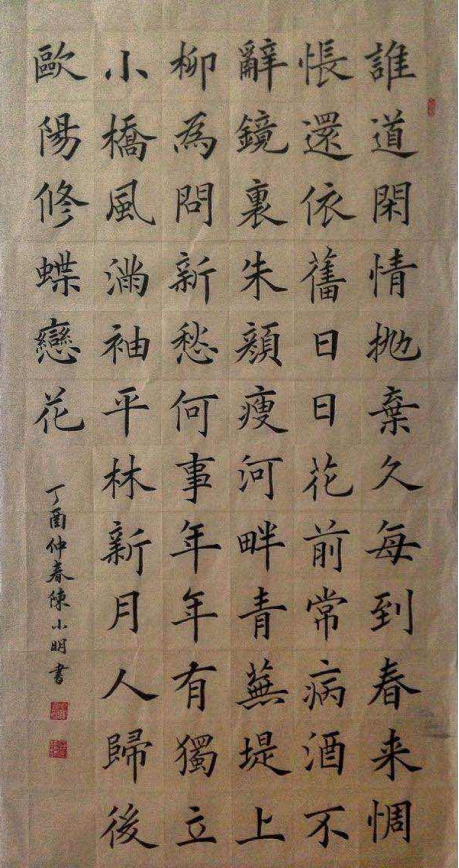 誰道閑情拋棄久每到春来惆
悵還依舊日日花前常病酒不
辭鏡裏朱顏瘦河畔青蕪堤上
柳為問新愁何事年年有獨立
小橋風滿袖平林新月人歸後
歐陽修蝶戀花
丁酉仲春陳小明書